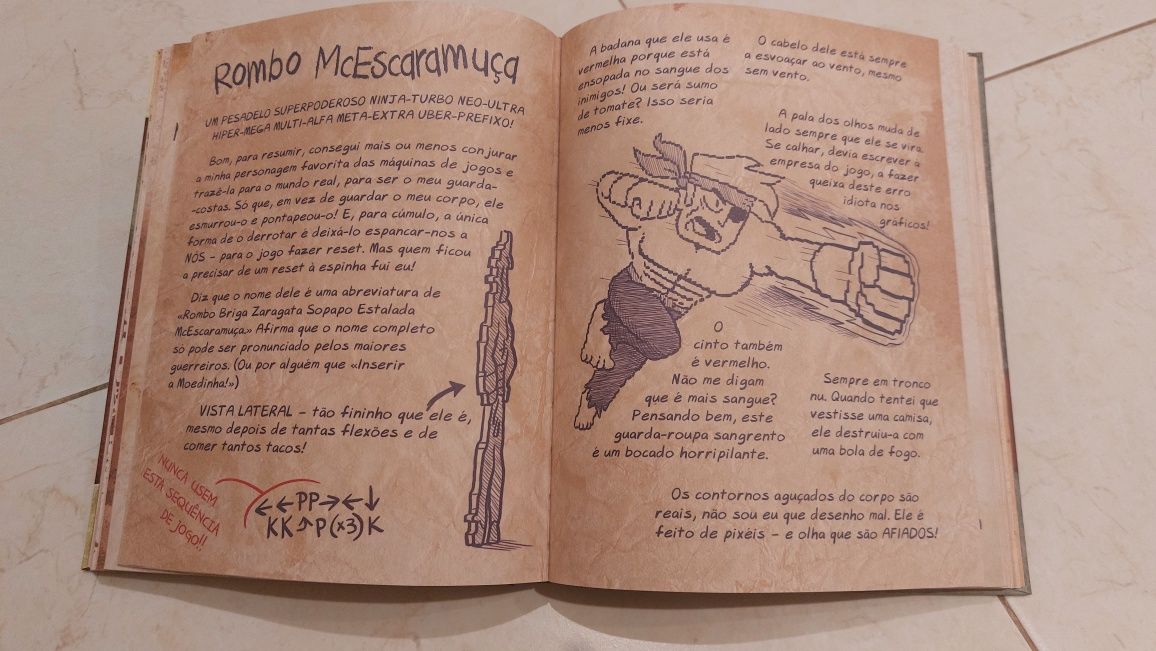 Rombo McEscaramuça
UM PESADELO SUPERPODEROSO NINJA-TURBO NEO-ULTRA
HIPER-MEGA MULTI-ALFA META-EXTRA UBER-PREFIXO!
Bom, para resumir, consegui mais ou menos conjurar
a minha personagem favorita das máquinas de jogos e
trazê-la para o mundo real, para ser o meu guarda-
-costas. Só que, em vez de guardar o meu corpo, ele
esmurrou-o e pontapeou-o! E, para cúmulo, a única
forma de o derrotar é deixá-lo espancar-nos a
NÓS – para o jogo fazer reset. Mas quem ficou
a precisar de um reset à espinha fui eu!
Diz que o nome dele é uma abreviatura de
«Rombo Briga Zaragata Sopapo Estalada
McEscaramuça.» Afirma que o nome completo
só pode ser pronunciado pelos maiores
guerreiros. (Ou por alguém que «Inserir
a Moedinha!»)
VISTA LATERAL – tão fininho que ele é,
mesmo depois de tantas flexões e de
comer tantos tacos!
NUNCA USEM
ESTA SEQUÊNCIA
DE JOGO!!
←←PP→←↓
KK↗P(x3)K
A badana que ele usa é
vermelha porque está
ensopada no sangue dos
inimigos! Ou será sumo
de tomate? Isso seria
menos fixe.
O cabelo dele está sempre
a esvoaçar ao vento, mesmo
sem vento.
A pala dos olhos muda de
lado sempre que ele se vira.
Se calhar, devia escrever a
empresa do jogo, a fazer
queixa deste erro
idiota nos
gráficos!
O
cinto também
é vermelho.
Não me digam
que é mais sangue?
Pensando bem, este
guarda-roupa sangrento
é um bocado horripilante.
Sempre em tronco
nu. Quando tentei que
vestisse uma camisa,
ele destruiu-a com
uma bola de fogo.
Os contornos aguçados do corpo são
reais, não sou eu que desenho mal. Ele é
feito de pixéis – e olha que são AFIADOS!